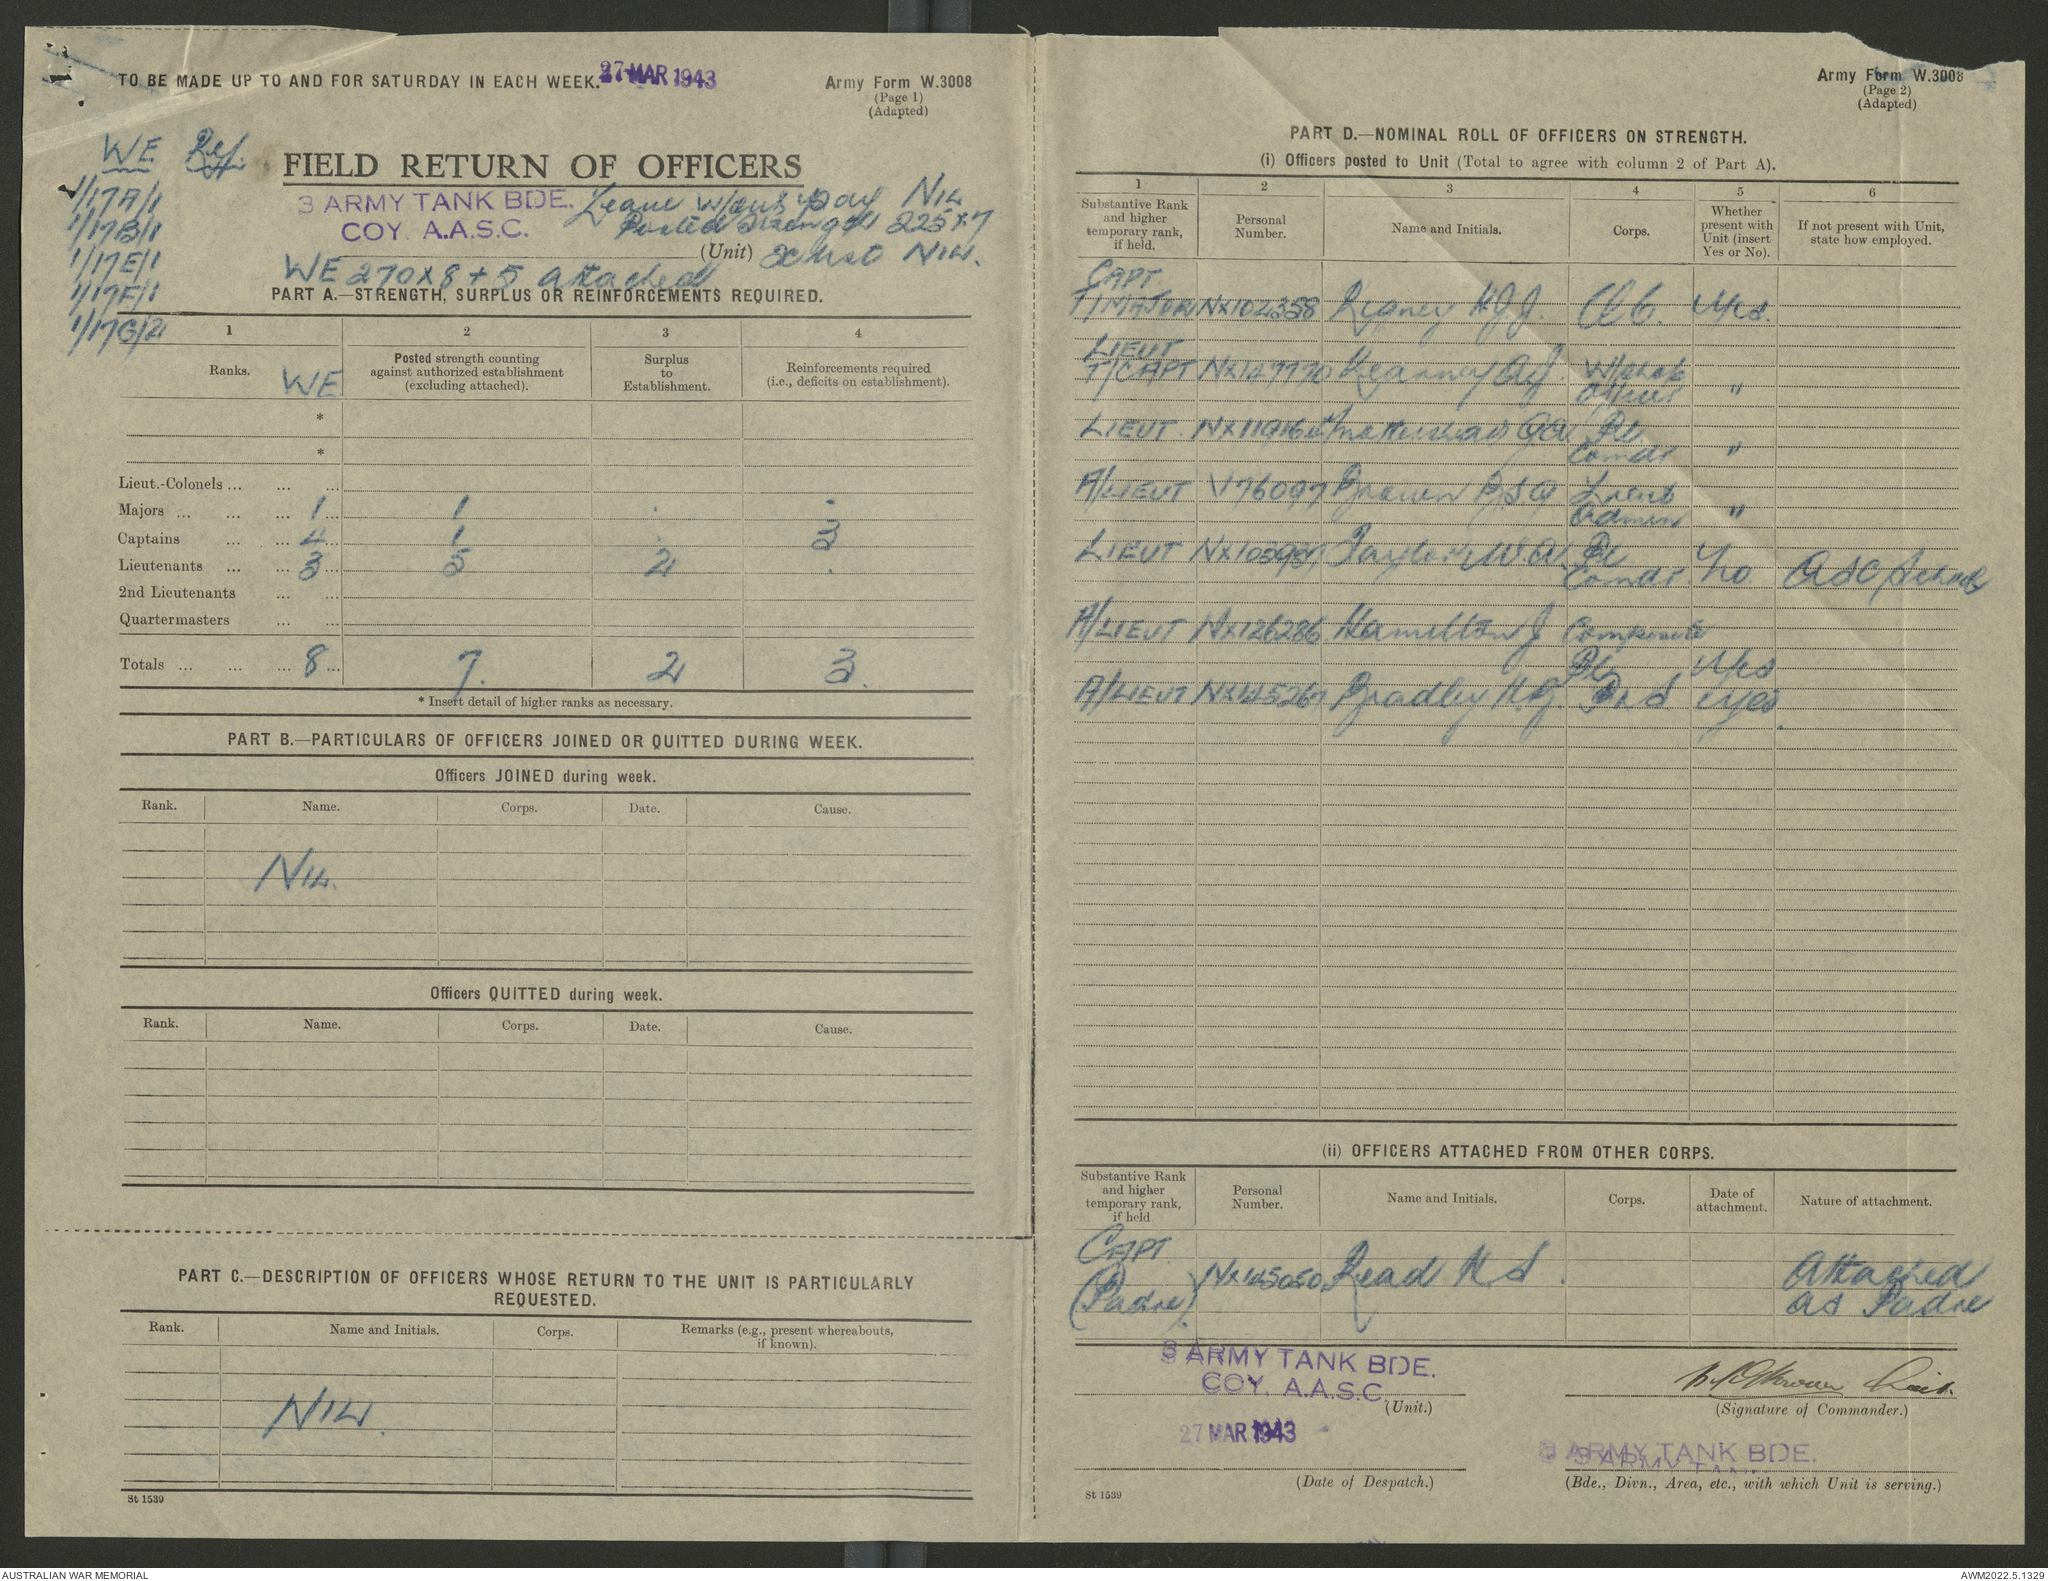 TO BE MADE UP TO AND FOR SATURDAY IN EACH WEEK. 27 MAR 1943
Army Form W.3008
(Page 1)
(Adapted)
WE Ref.
1/17A/1
1/17B/1
1/17E/1
1/17F/1
1/17G/2
FIELD RETURN OF OFFICERS
3 ARMY TANK BDE.
COY. A.A.S.C.
Leave w/out pay NIL
Posted Strength 225 x 7
(Unit) NIL.
WE 270 x 8 + 5 attached
PART A.—STRENGTH, SURPLUS OR REINFORCEMENTS REQUIRED.
1 2 3 4
Ranks. WE Posted strength counting against authorized establishment (excluding attached). Surplus to Establishment. Reinforcements required (i.e., deficits on establishment).
*
*
Lieut.-Colonels ... ... ...
Majors ... ... ... 1 1 . -
Captains ... ... 4 1 . 3
Lieutenants ... ... 3 5 2 .
2nd Lieutenants ... ...
Quartermasters ... ...
Totals ... ... ... 8 7. 2 3.
* Insert detail of higher ranks as necessary.
PART B.—PARTICULARS OF OFFICERS JOINED OR QUITTED DURING WEEK.
Officers JOINED during week.
Rank. Name. Corps. Date. Cause.
NIL.
Officers QUITTED during week.
Rank. Name. Corps. Date. Cause.
PART C.—DESCRIPTION OF OFFICERS WHOSE RETURN TO THE UNIT IS PARTICULARLY
REQUESTED.
Rank. Name and Initials. Corps. Remarks (e.g., present whereabouts, if known).
NIL.
St 1539
Army Form W.3008
(Page 2)
(Adapted)
PART D.—NOMINAL ROLL OF OFFICERS ON STRENGTH.
(i) Officers posted to Unit (Total to agree with column 2 of Part A).
1 2 3 4 5 6
Substantive Rank and higher temporary rank, if held. Personal Number. Name and Initials. Corps. Whether present with Unit (insert Yes or No). If not present with Unit, state how employed.
CAPT
T/MAJOR NX102358 H.J.J. O.C. Yes.
LIEUT
T/CAPT NX147770 Kearney A.J. W/shop
Officer "
LIEUT. Pl
Comdr "
A/LIEUT V76097 Brown Lieut
Admin "
LIEUT Taylor W.A. Pl
Comdr No ASC School
A/LIEUT NX126286 Hamilton J Composite
Pl Yes
A/LIEUT NX145267 Bradley H.J. Yes.
(ii) OFFICERS ATTACHED FROM OTHER CORPS.
Substantive Rank and higher temporary rank, if held Personal Number. Name and Initials. Corps. Date of attachment. Nature of attachment.
CAPT.
(Padre). NX145050 Read H S. Attached
as Padre
3 ARMY TANK BDE.
COY. A.A.S.C.
(Unit.)
Lieut.
(Signature of Commander.)
27 MAR 1943
(Date of Despatch.)
3 ARMY TANK BDE.
(Bde., Divn., Area, etc., with which Unit is serving.)
St 1539
AUSTRALIAN WAR MEMORIAL
AWM2022.5.1329